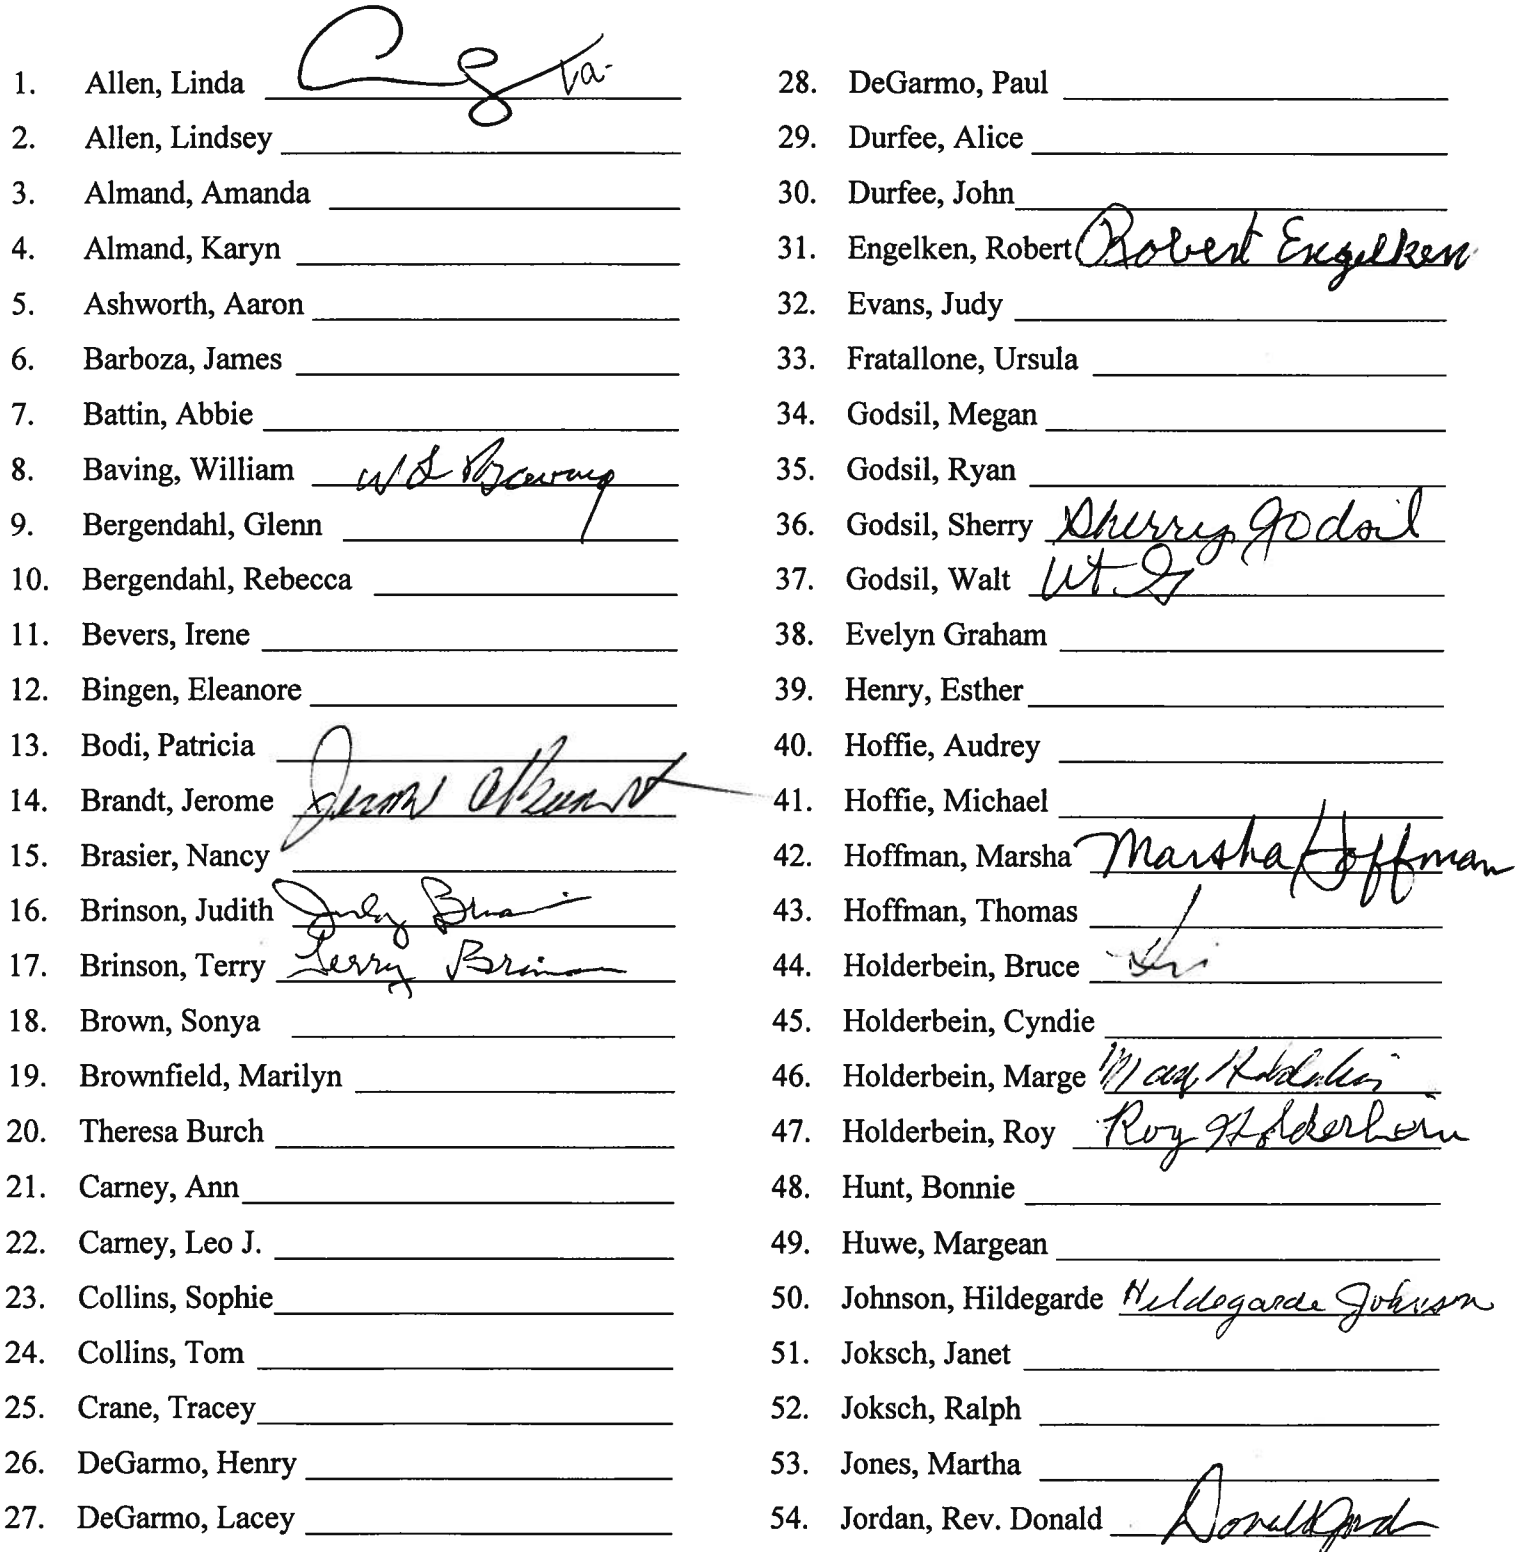 1. Allen, Linda
2. Allen, Lindsey
3. Almand, Amanda
4. Almand, Karyn
5. Ashworth, Aaron
6. Barboza, James
7. Battin, Abbie
8. Baving, William W L Baving
9. Bergendahl, Glenn
10. Bergendahl, Rebecca
11. Bevers, Irene
12. Bingen, Eleanore
13. Bodi, Patricia
14. Brandt, Jerome Jerome Brandt
15. Brasier, Nancy
16. Brinson, Judith Judy Brinson
17. Brinson, Terry Terry Brinson
18. Brown, Sonya
19. Brownfield, Marilyn
20. Theresa Burch
21. Carney, Ann
22. Carney, Leo J.
23. Collins, Sophie
24. Collins, Tom
25. Crane, Tracey
26. DeGarmo, Henry
27. DeGarmo, Lacey
28. DeGarmo, Paul
29. Durfee, Alice
30. Durfee, John
31. Engelken, Robert Robert Engelken
32. Evans, Judy
33. Fratallone, Ursula
34. Godsil, Megan
35. Godsil, Ryan
36. Godsil, Sherry Sherry Godsil
37. Godsil, Walt
38. Evelyn Graham
39. Henry, Esther
40. Hoffie, Audrey
41. Hoffie, Michael
42. Hoffman, Marsha Marsha Hoffman
43. Hoffman, Thomas
44. Holderbein, Bruce
45. Holderbein, Cyndie
46. Holderbein, Marge Marge Holderbein
47. Holderbein, Roy Roy Holderbein
48. Hunt, Bonnie
49. Huwe, Margean
50. Johnson, Hildegarde Hildegarde Johnson
51. Joksch, Janet
52. Joksch, Ralph
53. Jones, Martha
54. Jordan, Rev. Donald Donald Jordan